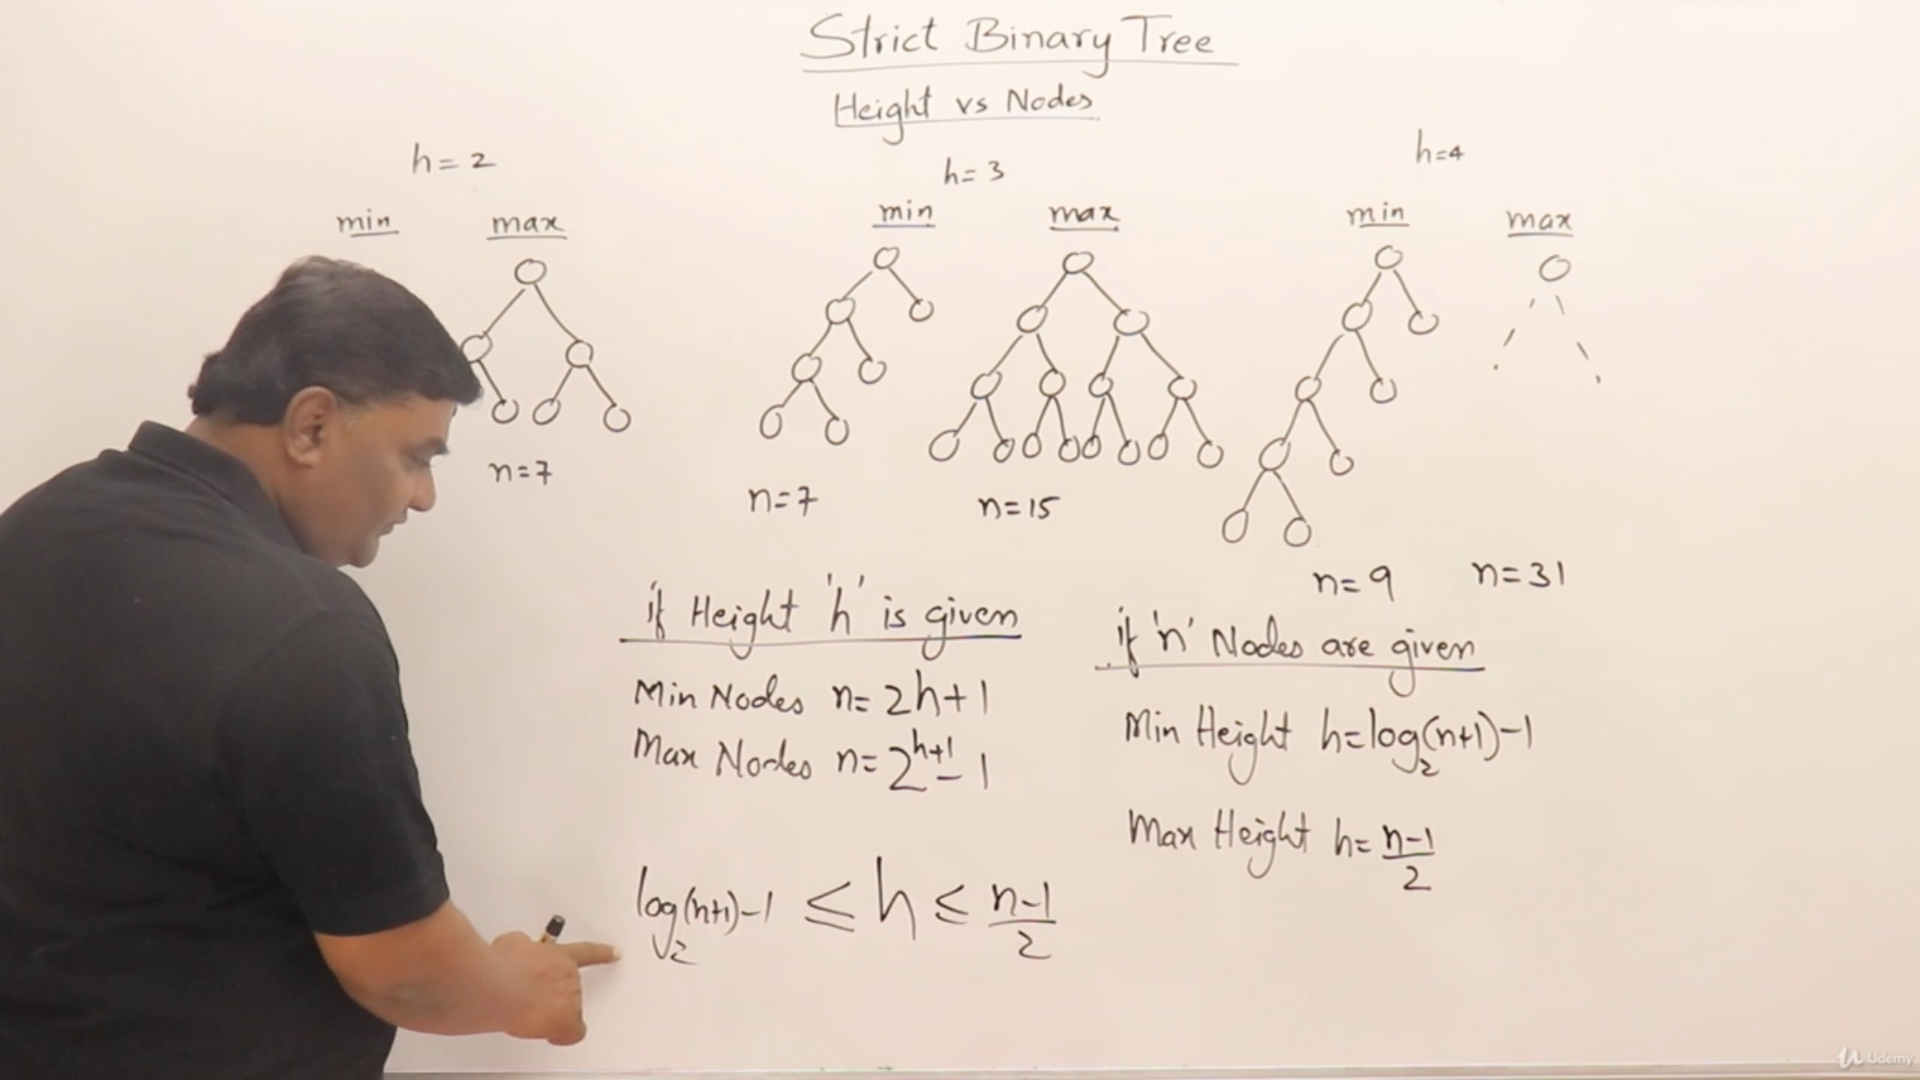 Strict Binary Tree
Height vs Nodes
h=2
min max
n=7
h=3
min max
n=7 n=15
h=4
min max
n=9 n=31
if Height 'h' is given
Min Nodes n=2h+1
Max Nodes n=2^{h+1}-1
log₂(n+1)-1 ≤ h ≤ \frac{n-1}{2}
if 'n' Nodes are given
Min Height h=log₂(n+1)-1
Max Height h=\frac{n-1}{2}
Udemy